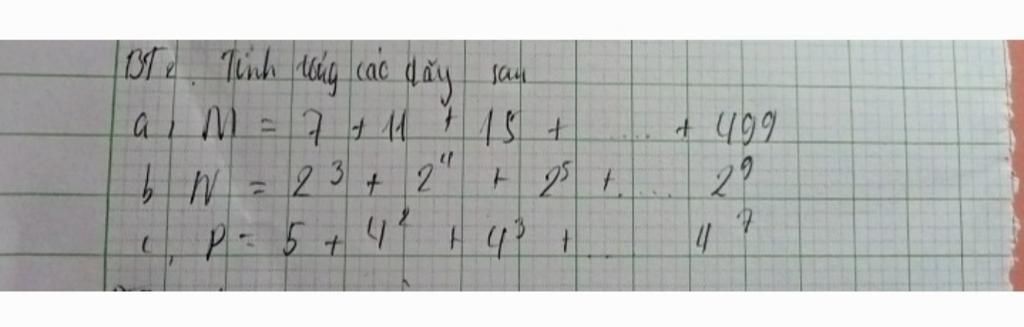 BT2. Tính tổng các dãy sau
a, M = 7 + 11 + 15 + ..... + 499
b N = 2³ + 2⁴ + 2⁵ + .... 2⁹
c, P = 5 + 4² + 4³ + ... 4⁷